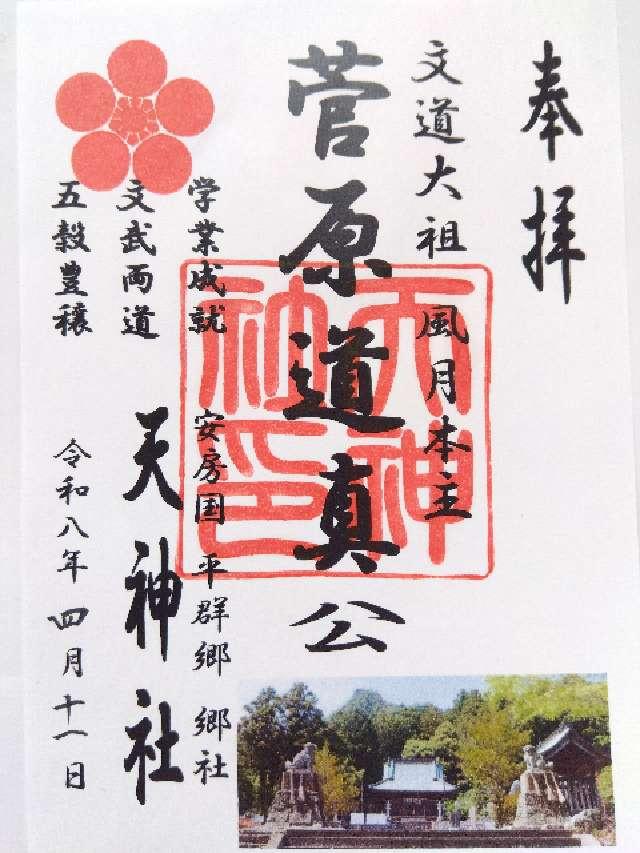 奉拝
文道大祖 風月本主
菅原道真公
天神社印
学業成就
文武両道
五穀豊穣
安房国 平群郷 郷社
天神社
令和八年 四月十一日